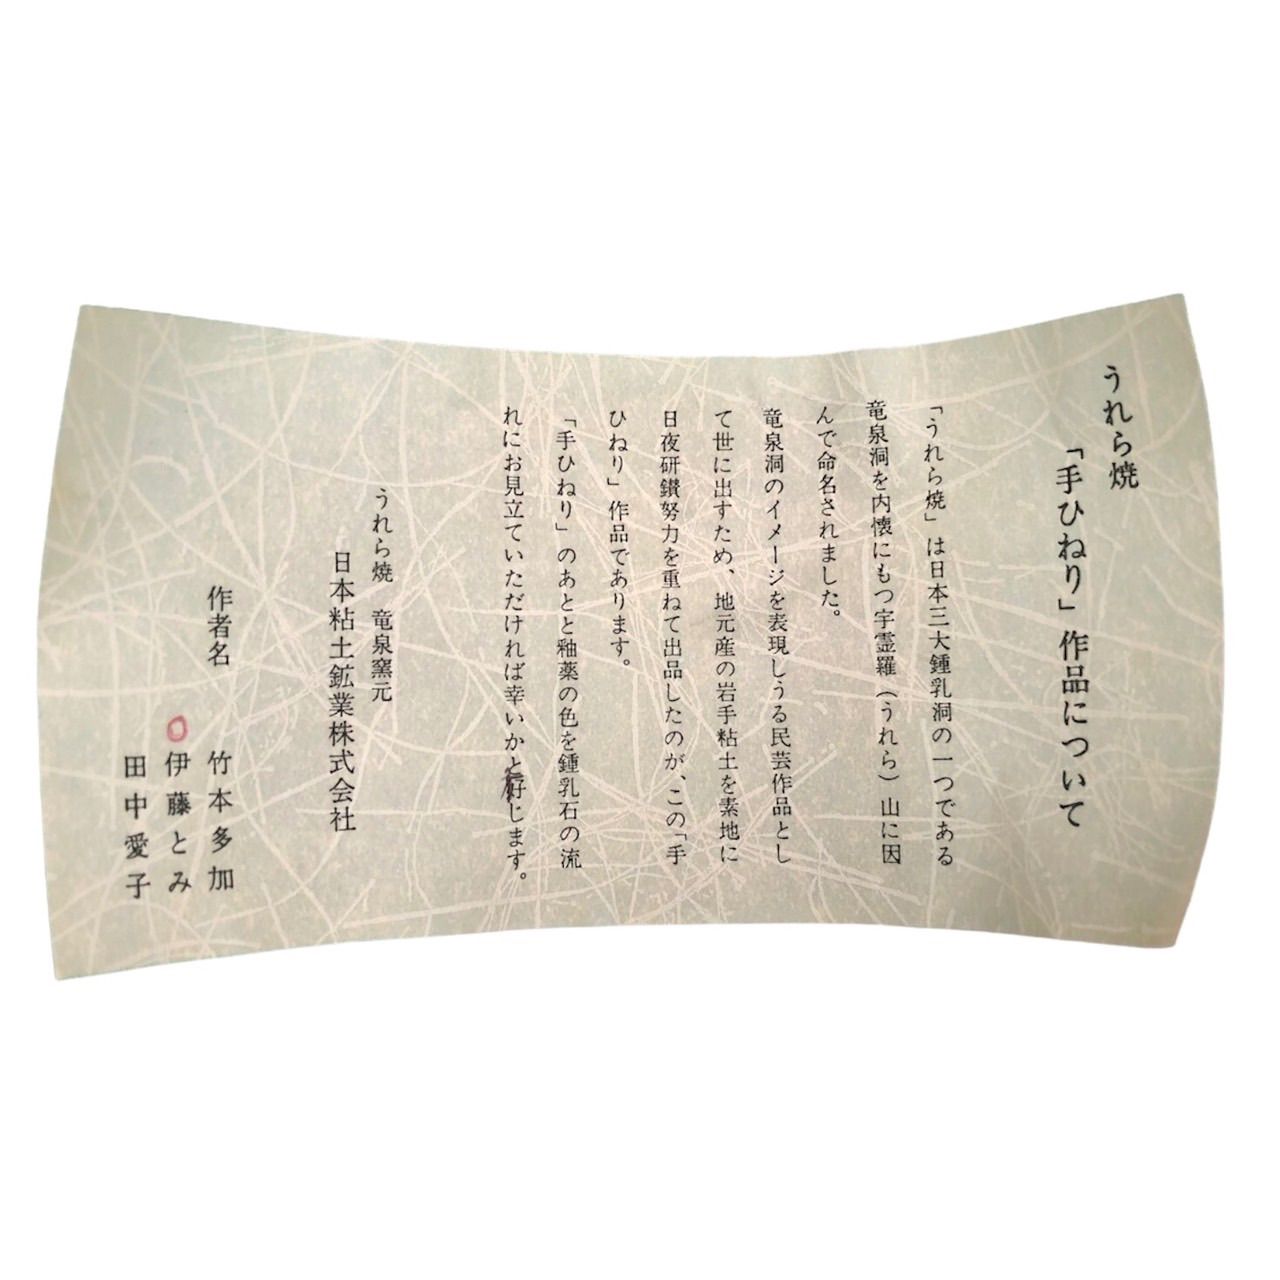 うれら焼
「手ひねり」作品について
「うれら焼」は日本三大鍾乳洞の一つである
竜泉洞を内懐にもつ宇霊羅（うれら）山に因
んで命名されました。
竜泉洞のイメージを表現しうる民芸作品とし
て世に出すため、地元産の岩手粘土を素地に
日夜研鑚努力を重ねて出品したのが、この「手
ひねり」作品であります。
「手ひねり」のあとと釉薬の色を鍾乳石の流
れにお見立ていただければ幸いかと存じます。
うれら焼　竜泉窯元
日本粘土鉱業株式会社
作者名　竹本多加
○伊藤とみ
田中愛子